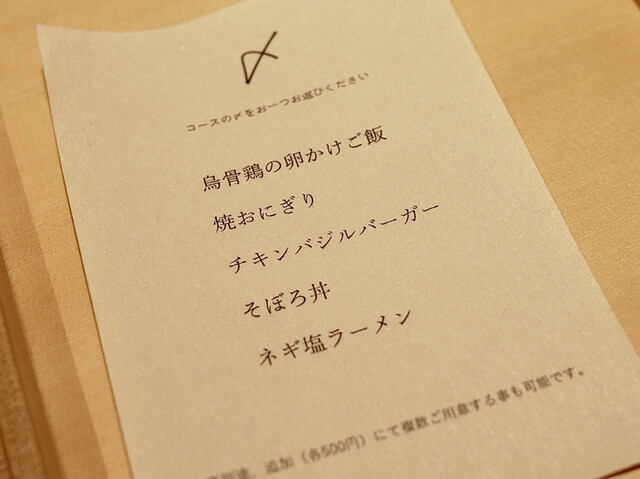 〆
コースの〆をお一つお選びください
烏骨鶏の卵かけご飯
焼おにぎり
チキンバジルバーガー
そぼろ丼
ネギ塩ラーメン
別途、追加（各500円）にて複数ご用意する事も可能です。